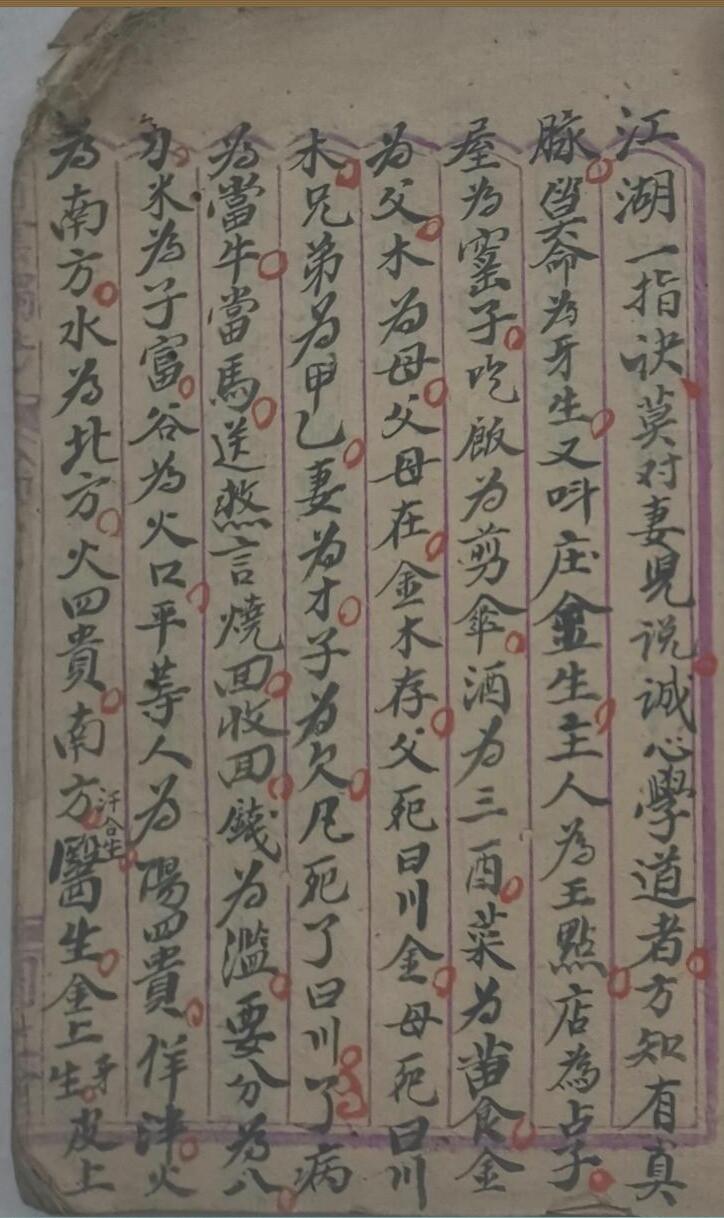 江湖一指诀莫对妻児说誠心學道者方知有真
脉皆命為牙生又呌庄金生主人為王點店為占子
屋為窰子吃飯為剪伞酒為三酉菜為苗食金
为父木为母父母在金木存父死曰川金母死曰川
木兄弟为甲乙妻为才子为欠凡死了曰川了病
為當牛當馬送熬言燒回收回錢为濫要分為八
刀米為子富谷為火口平等人为陽四貴佯津火
為南方水為北方火四貴南方汗合生醫生金上牙生皮上